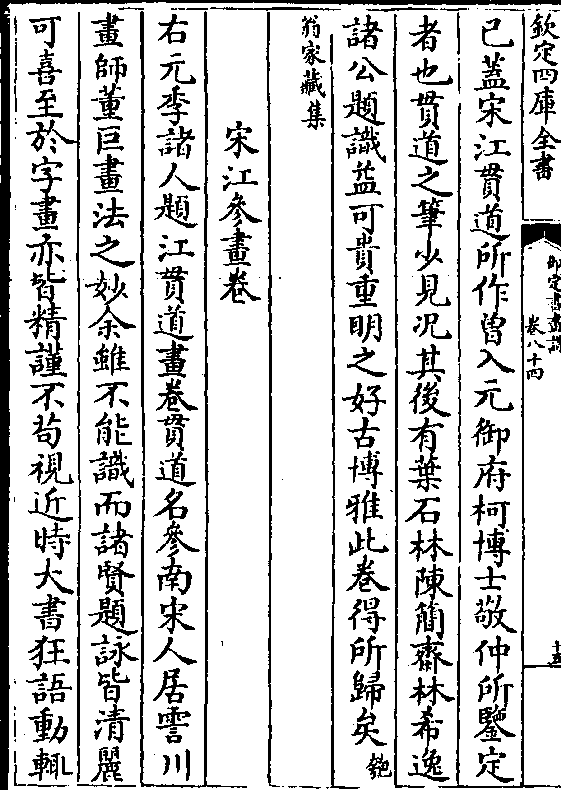 欽定四庫全書
御定書畫譜
卷八十四
十五
已蓋宋江貫道所作曽入元御府柯博士敬仲所鑒定
者也貫道之筆少見况其後有葉石林陳簡齋林希逸
諸公題識葢可貴重明之好古博雅此卷得所歸矣匏
翁家藏集
宋江參畫卷
右元季諸人題江貫道畫卷貫道名參南宋人居霅川
畫師董巨畫法之妙余雖不能識而諸賢題詠皆清麗
可喜至於字畫亦皆精謹不茍視近時大書狂語動輒